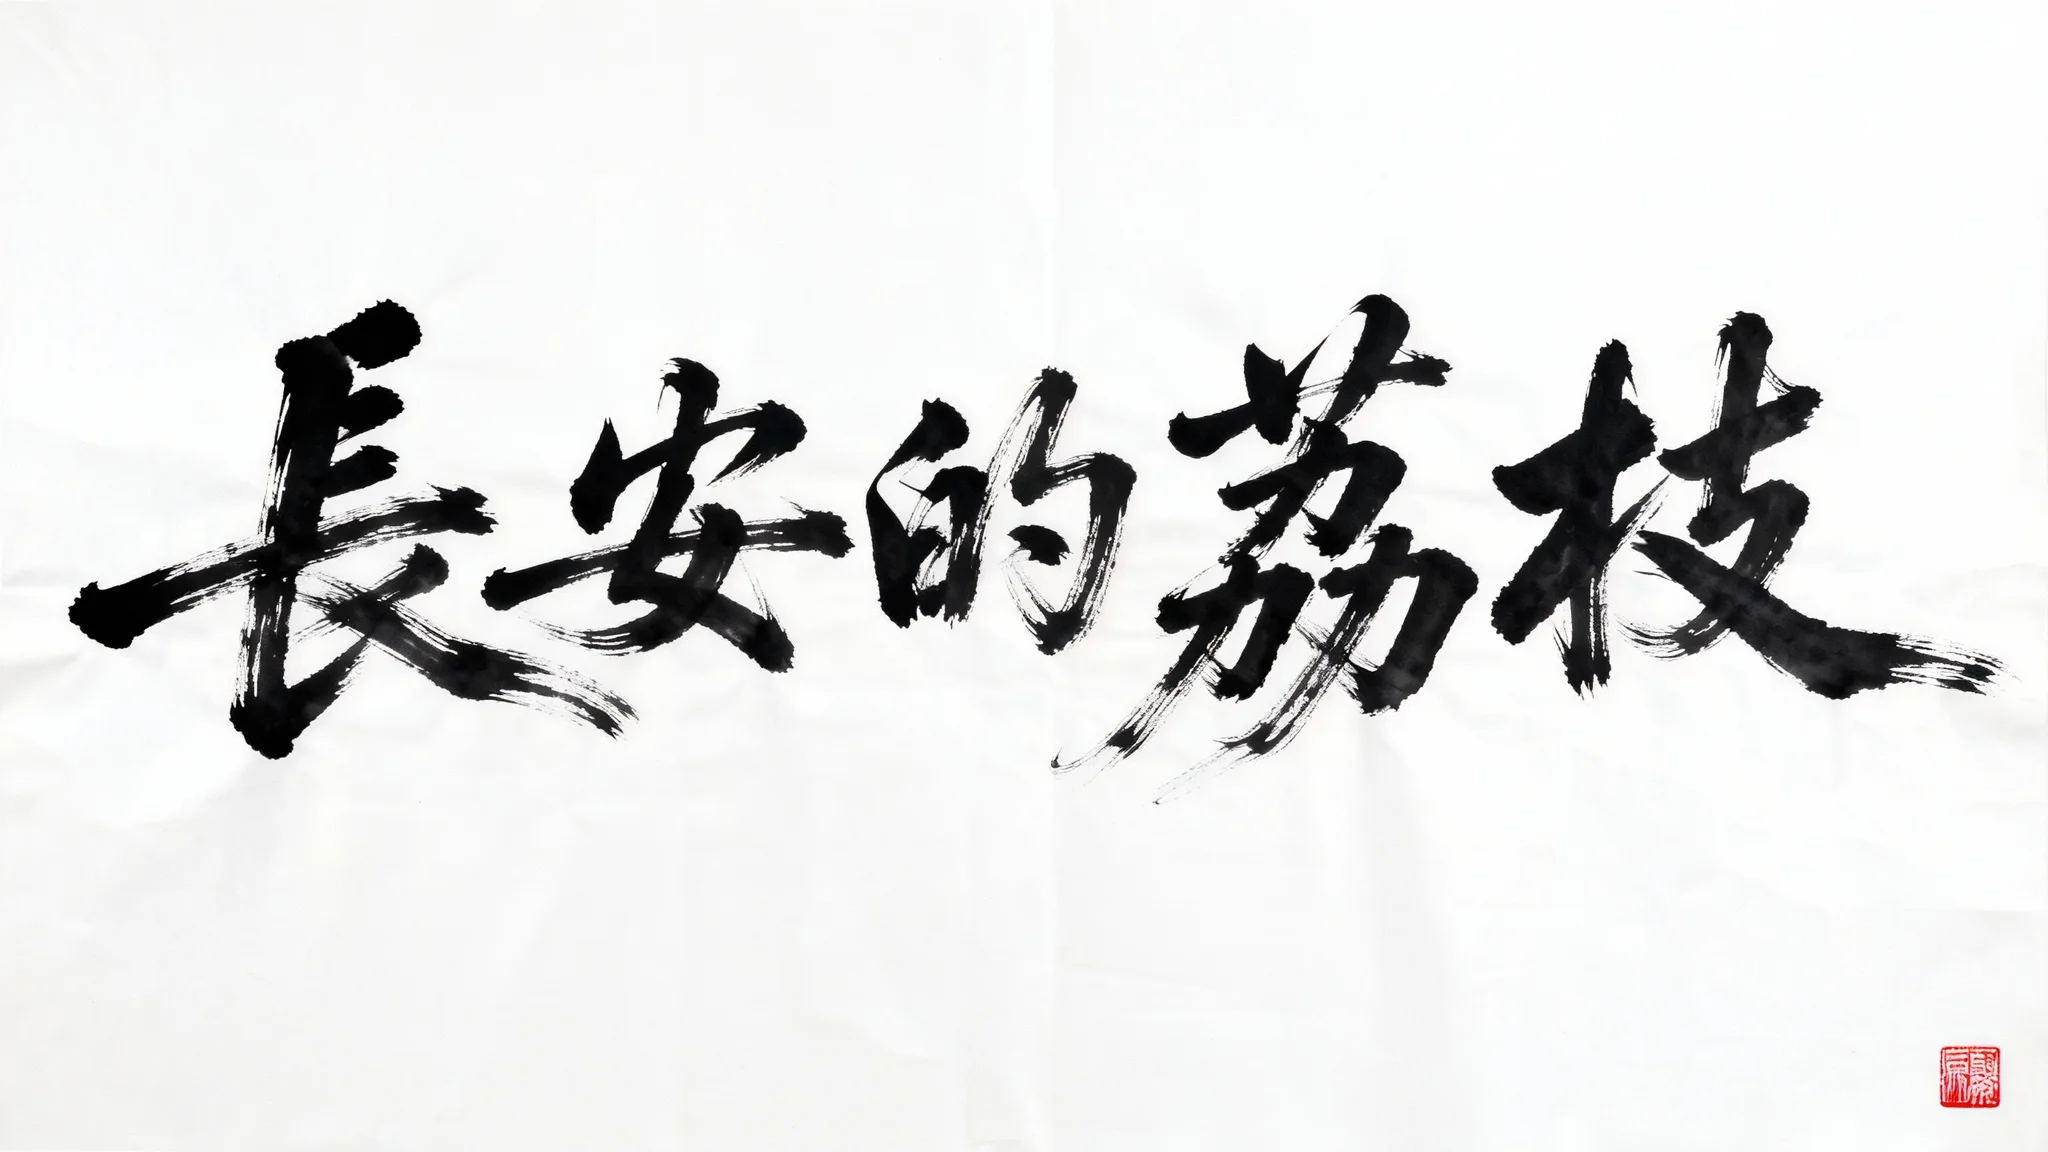 長安的荔枝